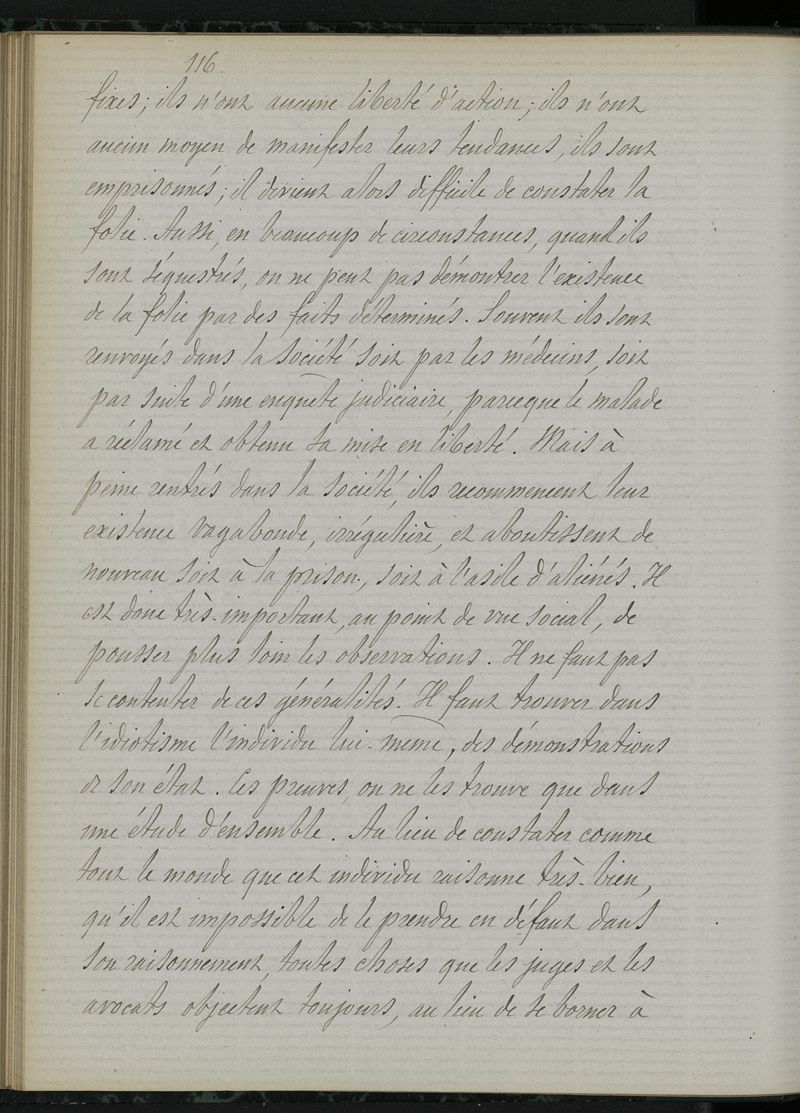 116.
fixes; ils n'ont aucune liberté d'action; ils n'ont
aucun moyen de manifester leurs tendances, ils sont
emprisonnés; il devient alors difficile de constater la
folie. Aussi, en beaucoup de circonstances, quand ils
sont séquestrés, on ne peut pas démontrer l'existence
de la folie par des faits déterminés. Souvent ils sont
renvoyés dans la société soit par les médecins, soit
par suite d'une enquête judiciaire, parceque le malade
a réclamé et obtenu sa mise en liberté. Mais à
peine rentrés dans la société, ils recommencent leur
existence vagabonde, irrégulière, et aboutissent de
nouveau soit à la prison, soit à l'asile d'aliénés. Il
est donc très-important, au point de vue social, de
pousser plus loin les observations. Il ne faut pas
se contenter de ces généralités. Il faut trouver dans
l'idiotisme l'individu lui-même, des démonstrations
de son état. Ces preuves, on ne les trouve que dans
une étude d'ensemble. Au lieu de constater comme
tout le monde que cet individu raisonne très-bien,
qu'il est impossible de le prendre en défaut dans
son raisonnement, toutes choses que les juges et les
avocats objectent toujours, au lieu de se borner à